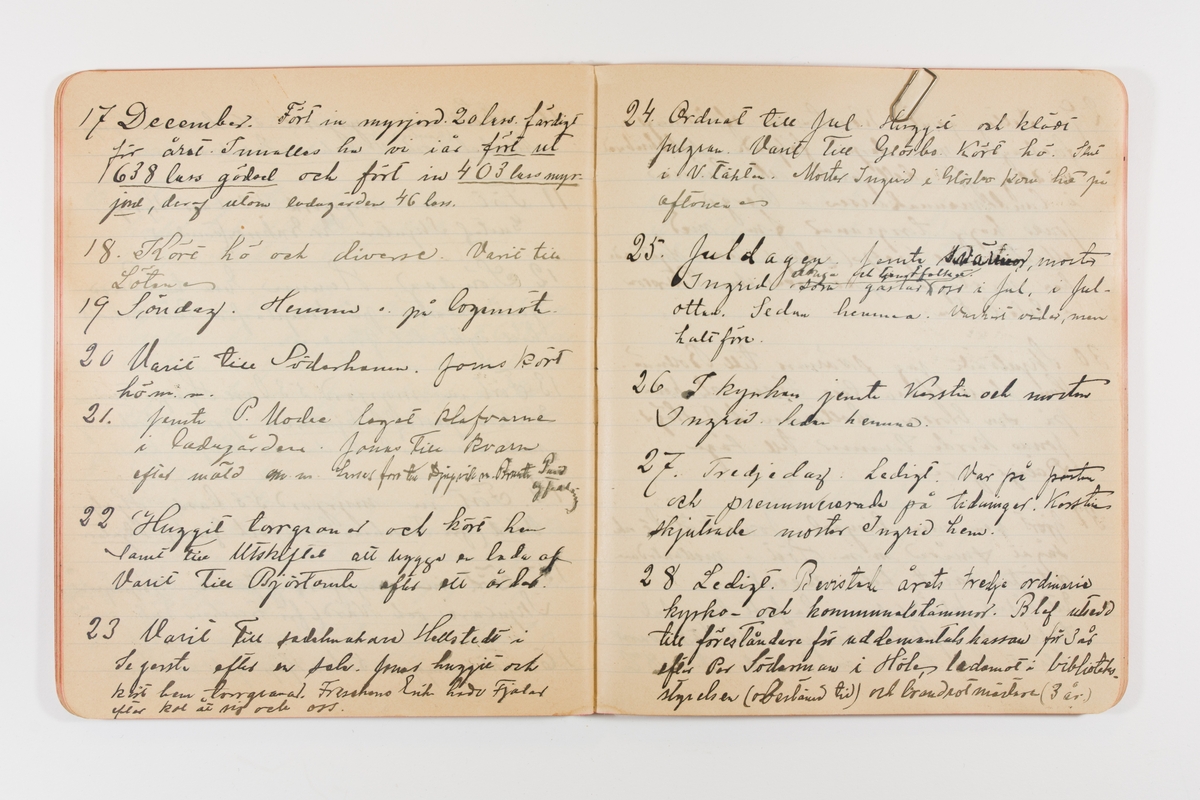 17 December. Fört in myrjord 20 lass. färdigt
för året. Innalles ha vi i år fört ut
1638 lass gödsel och fört in 403 lass myr-
jord, deraf utom ladugården 46 lass.
18. Kört hö och diverse. Varit till
Lötens
19 Söndag. Hemma o. på logemöt.
20 Varit till Söderhamn. Jonas kört
hö m. m.
21. Jemte P. Modee lagat klafvarne
i ladugården. Jonas till kvarn
efter mäld m. m.
22 Huggit torrgranar och kört hem
samt till Utskiftet att bygga en lada af
Varit till Björtomta efter ett ärde.
23 Varit till sadelmakare Hellstedt i
Segersta efter en sele. Jonas huggit och
kört hem torrgranar. Erik hade Fjalar
efter kol åt sig och oss.
24. Ordnat till Jul Huggit och klädt
julgran. Varit till Glösbo. Kört hö.
i V. täkten. Moster Ingrid i Glösbo kom hit på
aftonen
25. Juldagen. Jemte moster
Ingrid gästar oss i Jul, i Jul-
ottan. Sedan hemma. Vackert väder, men
halt före.
26 I kyrkan jemte Kerstin och moster
Ingrid. Sedan hemma.
27. Tredjedag. Ledigt. Var på posten
och prenumererade på tidningar. Kerstin
skjutsade moster Ingrid hem.
28 Ledigt. Bevistade årets tredje ordinarie
kyrko- och kommunalstämmor. Blef utsedd
till föreståndare för uddemantalskassan för 3 år
efter Per Söderman i Höle, ledamot i biblioteks-
styrelsen (obestämd tid) och brandrotmästare (3 år)